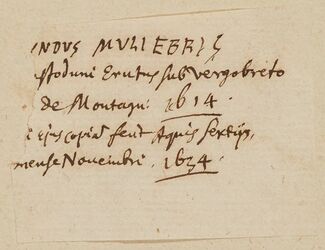 INDVS MVLIEBRIS
stoduni Erutus sub Vergobreto
de Montagu. 1614.
ejus copia fecit Aquis Sextijs,
mense Novembri. 1634.